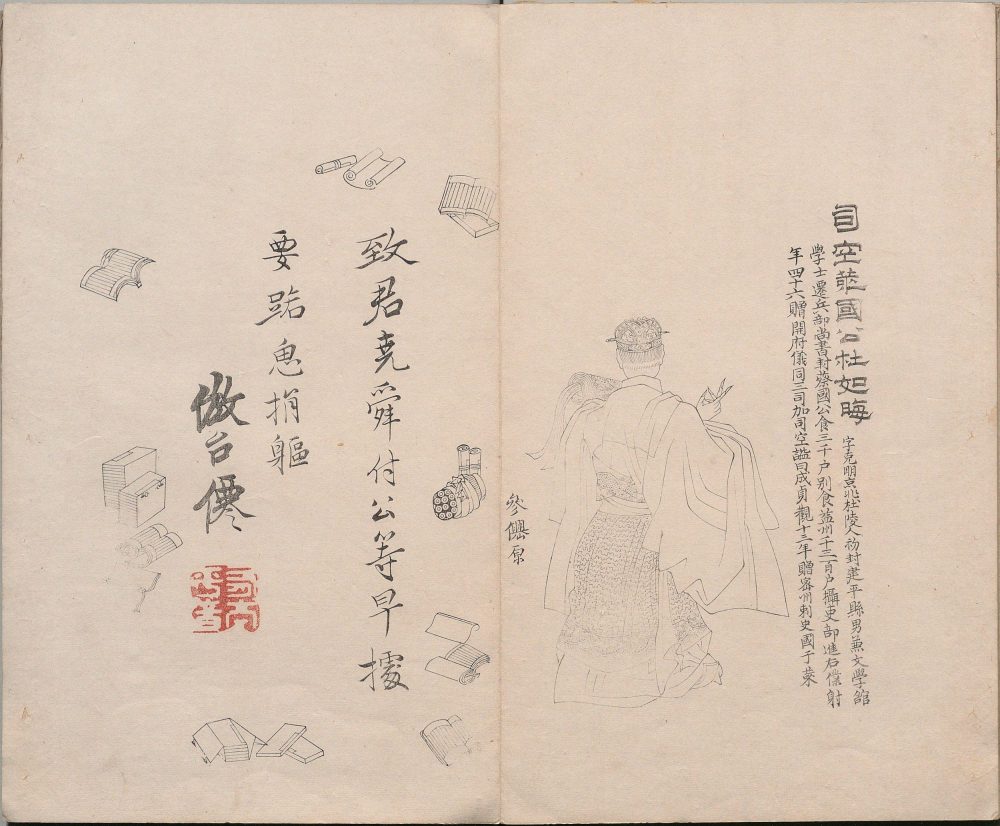 司空萊國公杜如晦
字克明京兆杜陵人初封建平縣男兼文學館
學士遷兵部尚書封蔡國公食三千户别食益州千三百户攝吏部進右僕射
年四十六贈開府儀同三司加司空諡曰成貞觀十三年贈密州刺史國于萊
參
原
致君堯舜付公等早據
要路思捐軀
倣